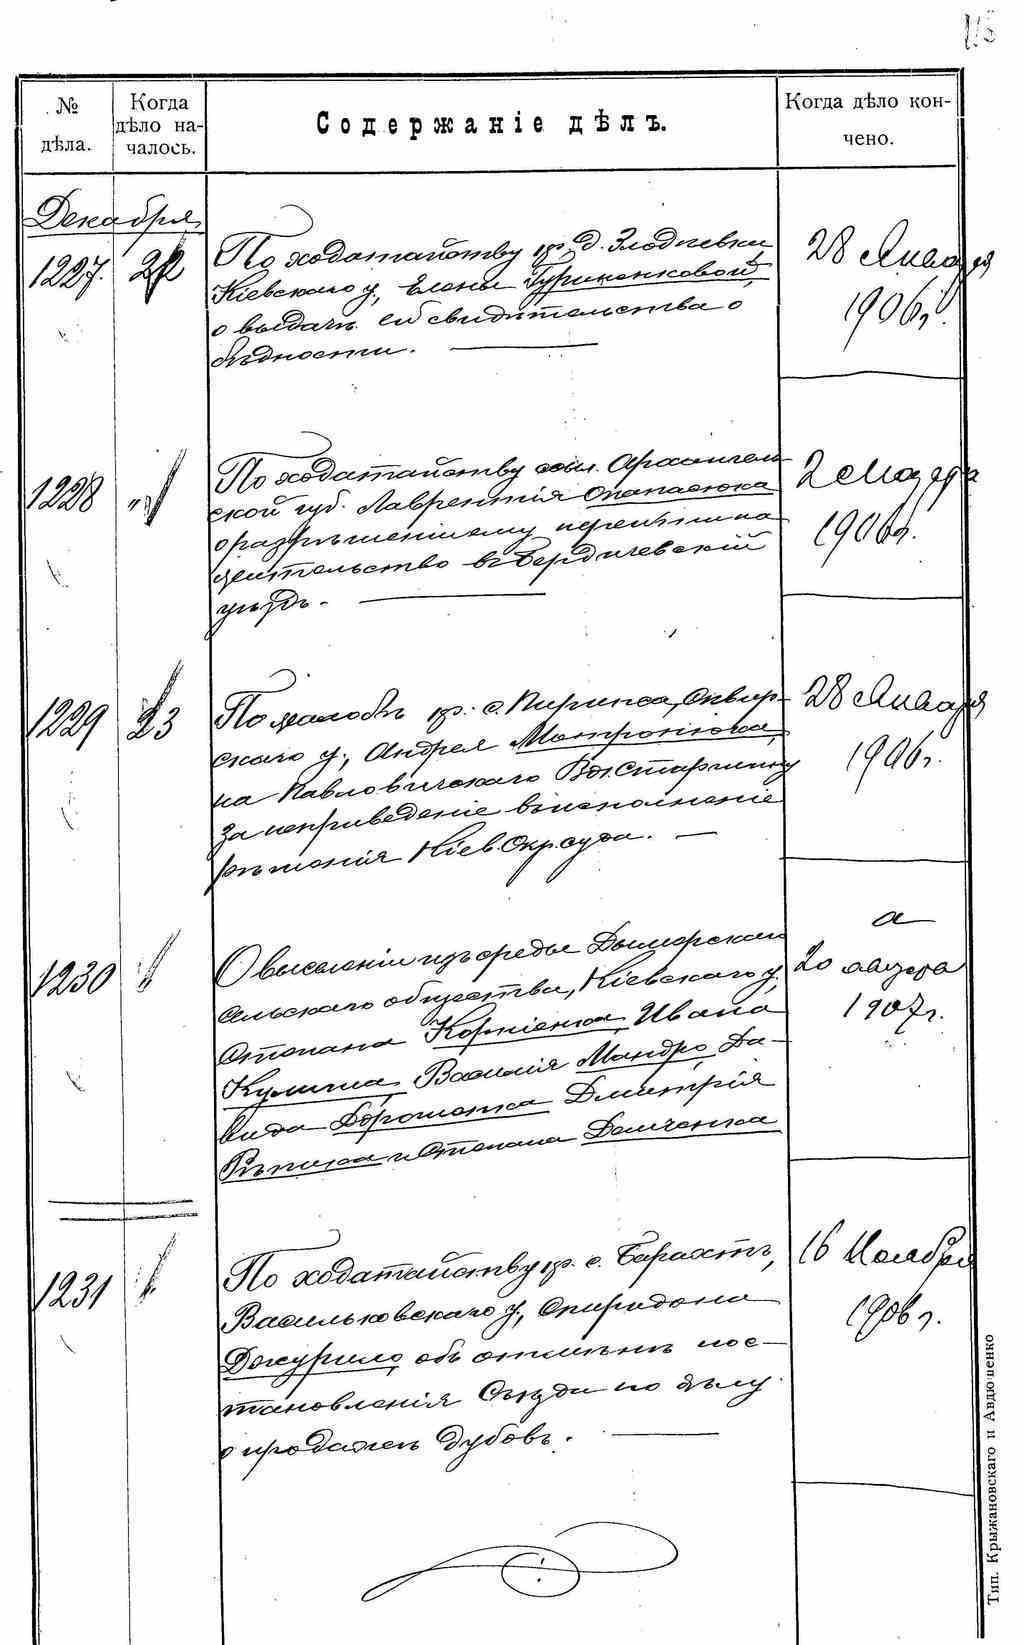 118
№ дѣла.
Когда дѣло на-
чалось.
Содержаніе дѣлъ.
Когда дѣло кон-
чено.
Декабря
1227. 22
По ходатайству кр. д. Злодіевки,
Кіевскаго у., Елены
о выдачѣ ей свидѣтельства о
бѣдности.
28 Января
1906 г.
1228 "
По ходатайству ссыл. Архангель
ской губ. Лаврентія Опанасюка
о разрѣшеніи ему переѣхать на
жительство въ Бердичевскій
уѣздъ.
2 Марта
1906 г.
1229 23
По жалобѣ кр. с. Сквир-
скаго у., Андрея
на Павловичскаго Вол. Старшину
за неприведеніе въ исполненіе
рѣшенія Кіев. Окр. суда.
28 Января
1906 г.
1230 "
О выселеніи изъ среды Дымерскаго
сельскаго общества, Кіевскаго у.
Степана Корніенка, Ивана
Кулиша, Василія Мандро, Да-
вида Дорошенка Дмитрія
Рѣпика и Степана Демченка
20 августа
1907 г.
1231 "
По ходатайству кр. с. Барахтъ,
Васильковскаго у., Спиридона
Докурно, объ отмѣнѣ пос-
тановленія Съѣзда по дѣлу
о продажѣ дубовъ.
16 Ноября
1906 г.
Тип. Крыжановскаго и Авдюшенко